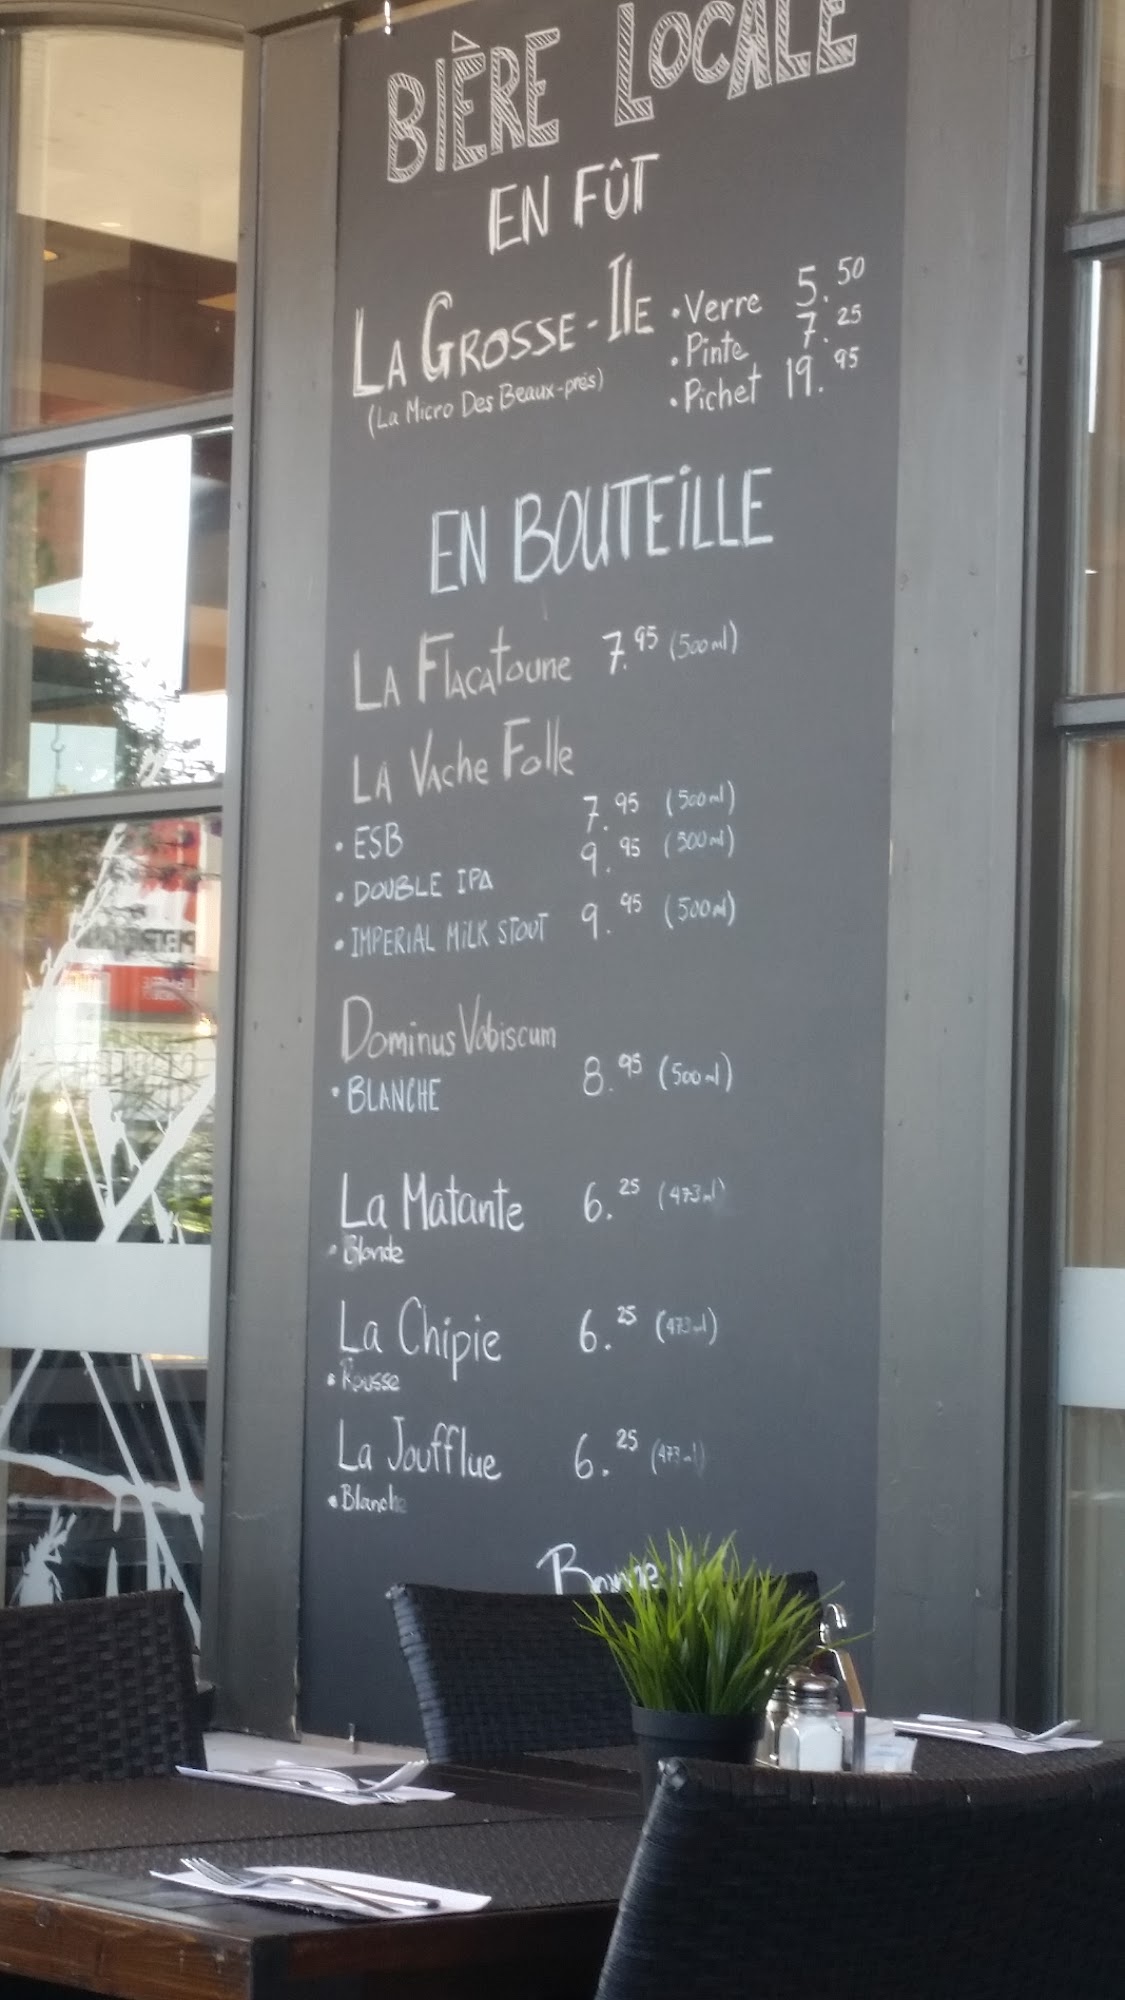 BIÈRE LOCALE
EN FÛT
LA GROSSE-ILE • Verre 5.50
• Pinte 7.25
(La Micro Des Beaux-prés) • Pichet 19.95
EN BOUTEILLE
LA FLACATOUNE 7.95 (500ml)
LA VACHE FOLLE
• ESB 7.95 (500ml)
• DOUBLE IPA 9.95 (500ml)
• IMPERIAL MILK STOUT 9.95 (500ml)
Dominus Vobiscum
• BLANCHE 8.95 (500ml)
La Matante 6.25 (473ml)
• Blonde
La Chipie 6.25 (473ml)
• Rousse
La Joufflue 6.25 (473ml)
• Blanche